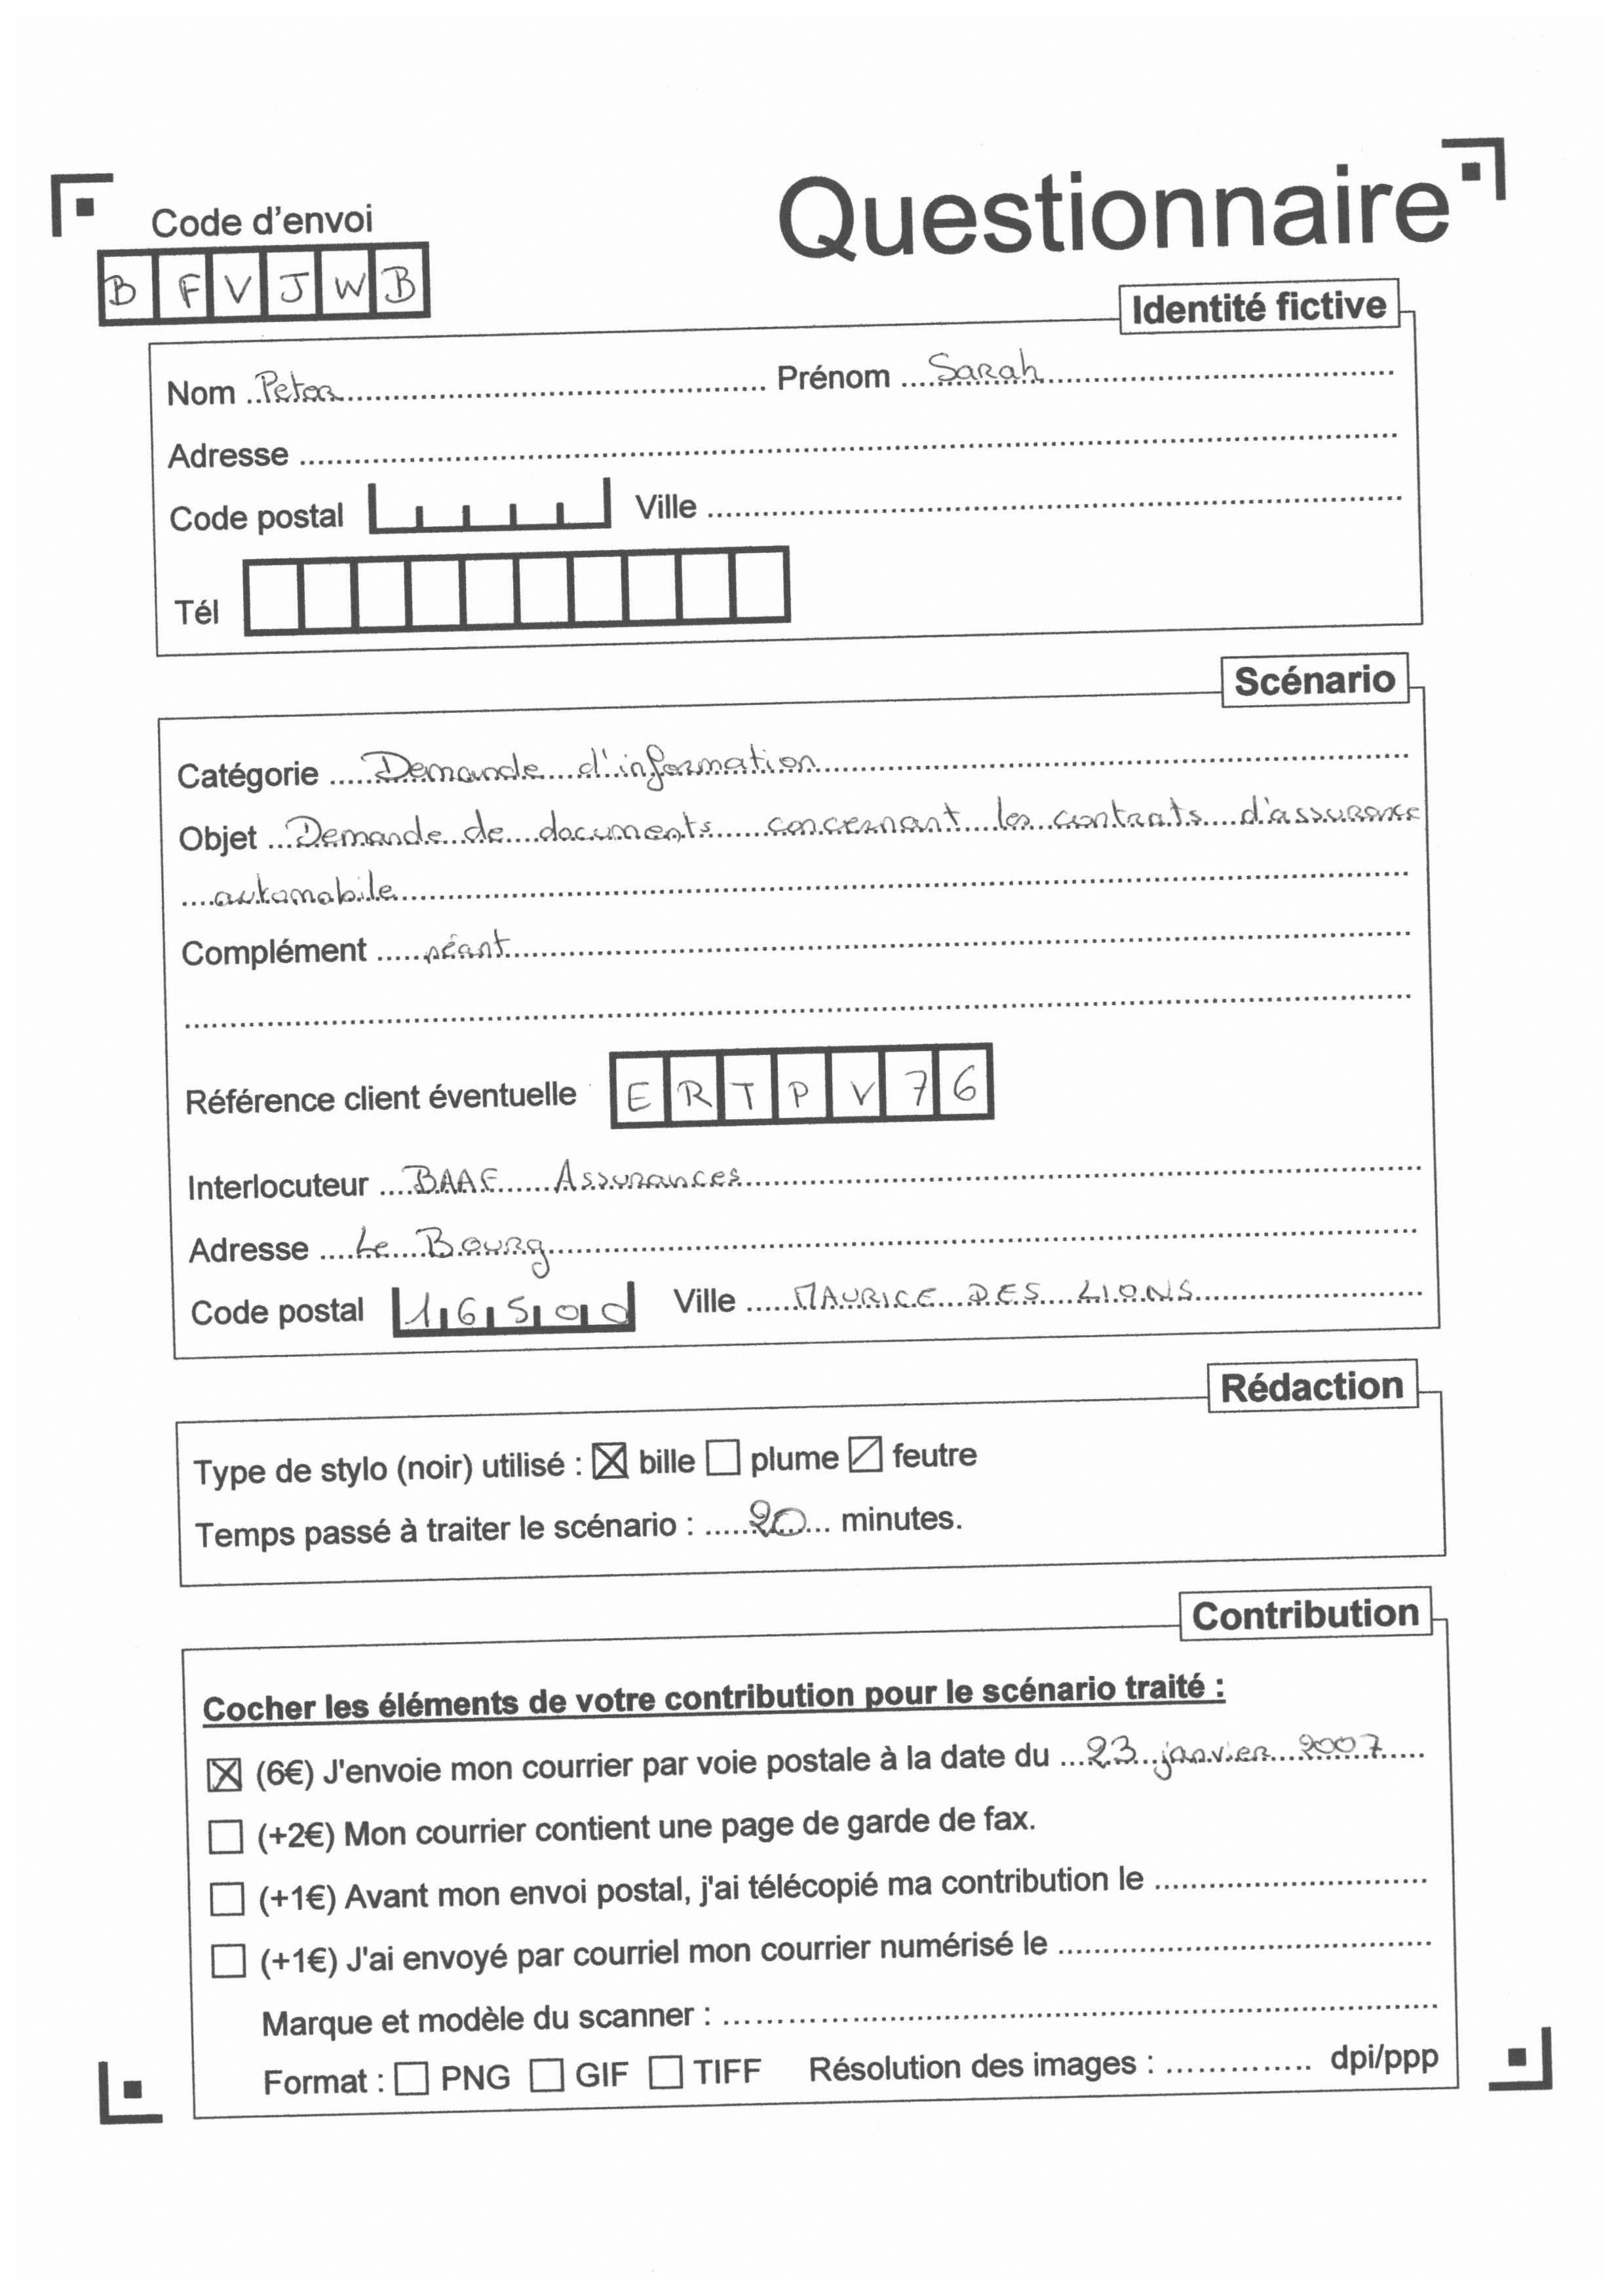 Questionnaire
Code d'envoi
B F V J W B
Identité fictive
Nom Prénom Sarah
Adresse
Code postal Ville
Tél
Scénario
Catégorie Demande d'information
Objet Demande de documents concernant les contrats d'assurance
automobile
Complément néant
Référence client éventuelle E R T P V 7 6
Interlocuteur Assurances
Adresse Le Bourg
Code postal 16500 Ville MAURICE DES LIONS
Rédaction
Type de stylo (noir) utilisé : ☒ bille ☐ plume ☑ feutre
Temps passé à traiter le scénario : 20 minutes.
Contribution
Cocher les éléments de votre contribution pour le scénario traité :
☒ (6€) J'envoie mon courrier par voie postale à la date du 23 janvier 2007
☐ (+2€) Mon courrier contient une page de garde de fax.
☐ (+1€) Avant mon envoi postal, j'ai télécopié ma contribution le
☐ (+1€) J'ai envoyé par courriel mon courrier numérisé le
Marque et modèle du scanner :
Format : ☐ PNG ☐ GIF ☐ TIFF Résolution des images : dpi/ppp